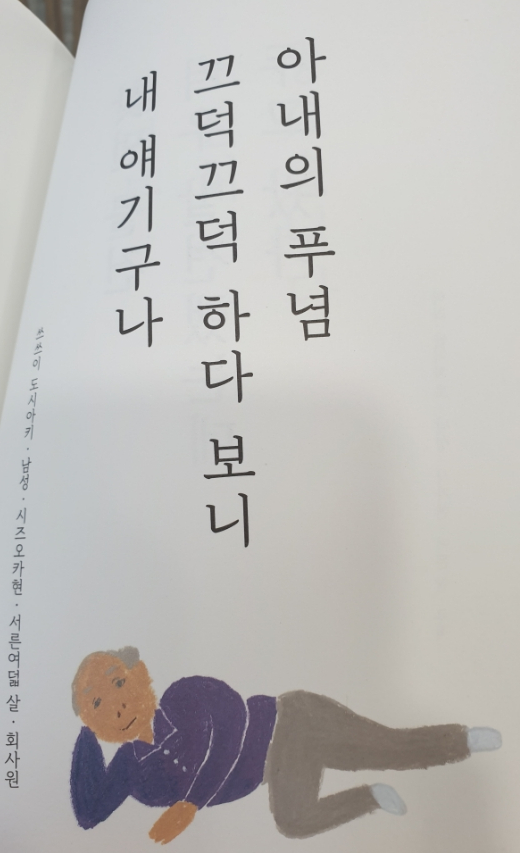 아내의 푸념
끄덕끄덕 하다 보니
내 얘기구나
쓰쓰이 도시아키·남성·시즈오카현·서른여덟 살·회사원